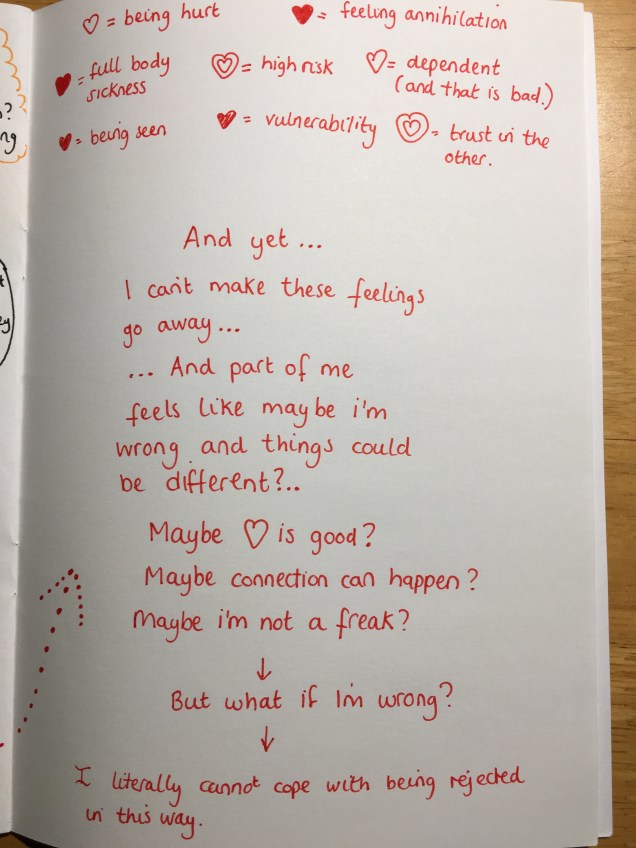 ♡ = being hurt
♥ = feeling annihilation
♥ = full body
sickness
♡ = high risk
♡ = dependent
(and that is bad.)
♥ = being seen
♥ = vulnerability
♡ = trust in the
other.
And yet ...
I can't make these feelings
go away ...
... And part of me
feels like maybe i'm
wrong and things could
be different?..
Maybe ♡ is good?
Maybe connection can happen?
Maybe i'm not a freak?
↓
But what if I'm wrong?
↓
I literally cannot cope with being rejected
in this way.
?
ng